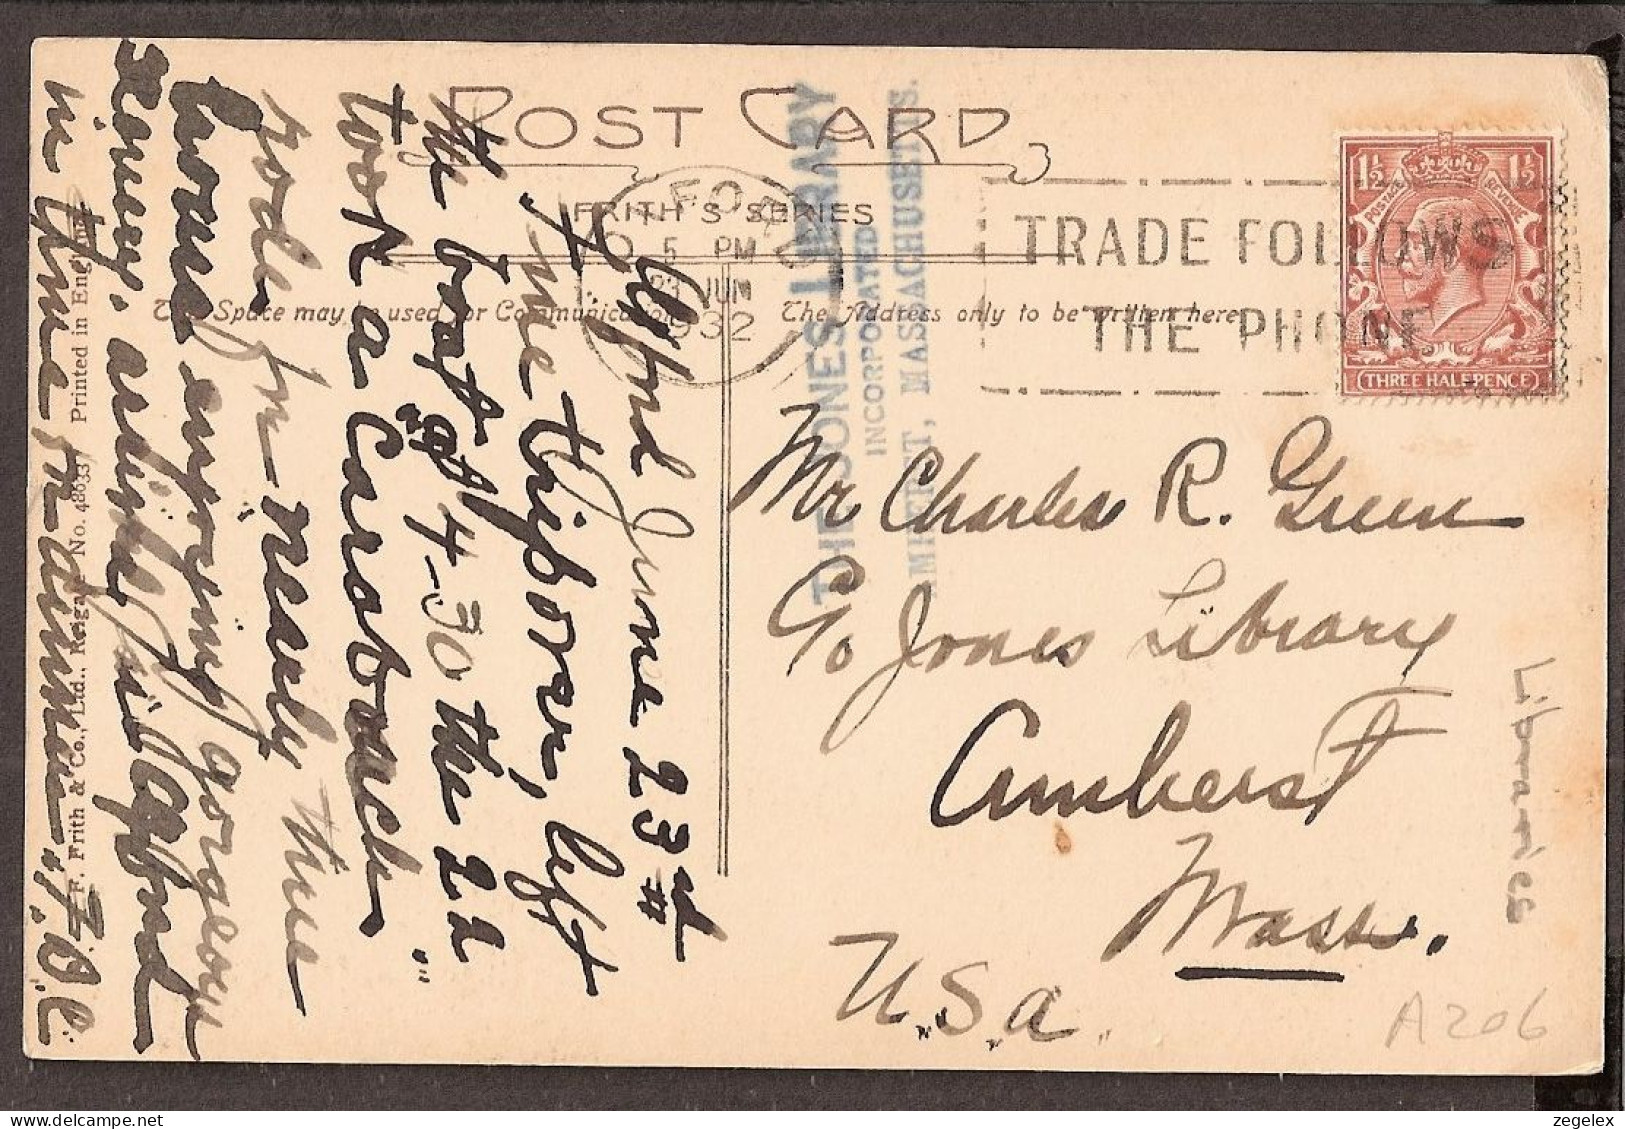 POST CARD
FRITH'S SERIES
This Space may be used for Communication
The Address only to be written here
OXFORD
5 PM
23 JUN
1932
TRADE FOLLOWS
THE PHONE
1½ 1½
POSTAGE REVENUE
THREE HALFPENCE
THE JONES LIBRARY
INCORPORATED
AMHERST, MASSACHUSETTS.
Oxford June 23rd
we left
the boat at 4-30 the 22
took a Carabouch
rode for nearly three
hours enjoying gorgeous
scenery, arriving in Oxford
in time for dinner. F.O.C.
F. Frith & Co., Ltd., Reigate No. 48037 Printed in England
Mr Charles R. Green
c/o Jones Library
Amherst
Mass.
U.S.A.
Libraries
A206
zegelex